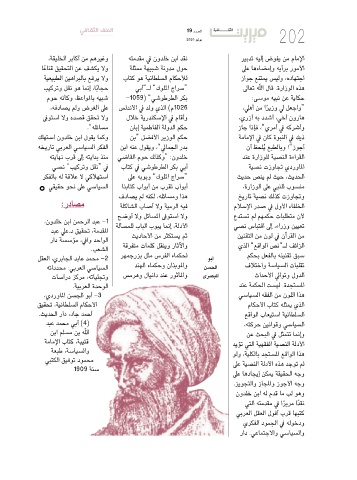 202
العدد 19
الملف الثقافي
الإمام من يفوض إليه تدبير
الأمور برأيه وإمضاءها على
اجتهاده، وليس يمتنع جواز
هذه الوزارة. قال الله تعالى
حكاية عن نبيه موسى:
"واجعل لي وزيرًا من أهلي،
هارون أخي، أشدد به أزري،
وأشركه في أمري"، فإذا جاز
ذلك في النبوة كان في الإمامة
أجوز"؛ وبالطبع يُلحظ أن
القراءة النصية للوزارة عند
الماوردي تجاوزت نصية
الحديث، حيث لم ينص حديث
منسوب للنبي على الوزارة،
وتجاوزت كذلك نصية تاريخ
الخلفاء الأول في صدر الإسلام
لأن متطلبات حكمهم لم تستدع
تعيين وزراء إلى اقتباس نصي
من القرآن في لون من التقنين
الزائف لـ"نص الواقع" الذي
سبق تقنينه بالفعل بحكم
تقلبات السياسة واختلاف
الدول وتوالي الأحداث
المستجدة. ليست الحكمة عند
هذا اللون من الفقه السياسي
الذي يمثله كتاب الأحكام
السلطانية استيعاب الواقع
السياسي وقوانين حركته،
وإنما تتمثل في البحث عن
الأدلة النصية الفقهية التي تؤيد
هذا الواقع المستجد بالكلية، ولو
لم توجد هذه الأدلة النصية على
وجه الحقيقة يمكن إيجادها على
وجه الأجوز والمجاز والتجويز.
وهو لب ما قدم له ابن خلدون
نقدًا مبررًا في مقدمته التي
كتبها قرب أفول العقل العربي
ودخوله في الجمود الفكري
والسياسي والاجتماعي. دار
نقد ابن خلدون في مقدمته
حول مدونة شبيهة ممثلة
للأحكام السلطانية هو كتاب
"سراج الملوك" لـ"أبي
بكر الطرطوشي" (1059-
1026م) الذي ولد في الأندلس
وأقام في الإسكندرية خلال
حكم الدولة الفاطمية إبان
حكم الوزير الأفضل "بن
بدر الجمالي"، ويقول عنه ابن
خلدون: "وكذلك حوم القاضي
أبي بكر الطرطوشي في كتاب
"سراج الملوك" وبوبه على
أبواب تقرب من أبواب كتابنا
هذا ومسائله، لكنه لم يصادف
فيه الرمية ولا أصاب الشاكلة
ولا استوفى المسائل ولا أوضح
الأدلة، إنما يبوب الباب للمسألة
ثم يستكثر من الأحاديث
والآثار وينقل كلمات متفرقة
لحكماء الفرس مثل بزرجمهر
والموبذان وحكماء الهند
والمأثور عند دانيال وهرمس
أبو
الحسن
البصري
وغيرهم من أكابر الخليقة،
ولا يكشف عن التحقيق قناعًا
ولا يرفع بالبراهين الطبيعية
حجابًا، إنما هو نقل وتركيب
شبيه بالمواعظ، وكأنه حوم
على الغرض ولم يصادفه،
ولا تحقق قصده ولا استوفى
مسائله".
وكما يقول ابن خلدون استهلك
الفكر السياسي العربي تاريخه
منذ بدايته إلى قرب نهايته
في "نقل وتركيب" نصي
استهلاكي لا علاقة له بالفكر
السياسي على نحو حقيقي
مصادر:
1- عبد الرحمن ابن خلدون،
المقدمة، تحقيق د.علي عبد
الواحد وافي، مؤسسة دار
الشعب.
2- محمد عابد الجابري، العقل
السياسي العربي، محدداته
وتجلياته، مركز دراسات
الوحدة العربية.
3- أبو الحسن الماوردي،
الأحكام السلطانية، تحقيق
أحمد جاد، دار الحديث.
(4) أبي محمد عبد
الله بن مسلم ابن
قتيبة، كتاب الإمامة
والسياسة، طبعة
محمود توفيق الكتبي
سنة 1909